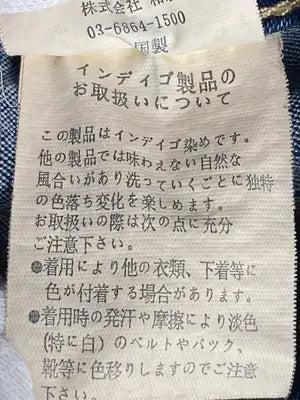 株式会社
03-6864-1500
国製
インディゴ製品の
お取扱いについて
この製品はインディゴ染めです。
他の製品では味わえない自然な
風合いがあり洗っていくごとに独特
の色落ち変化を楽しめます。
お取扱いの際は次の点に充分
ご注意下さい。
●着用により他の衣類、下着等に
色が付着する場合があります。
●着用時の発汗や摩擦により淡色
(特に白)のベルトやバック、
靴等に色移りしますのでご注意
下さい。